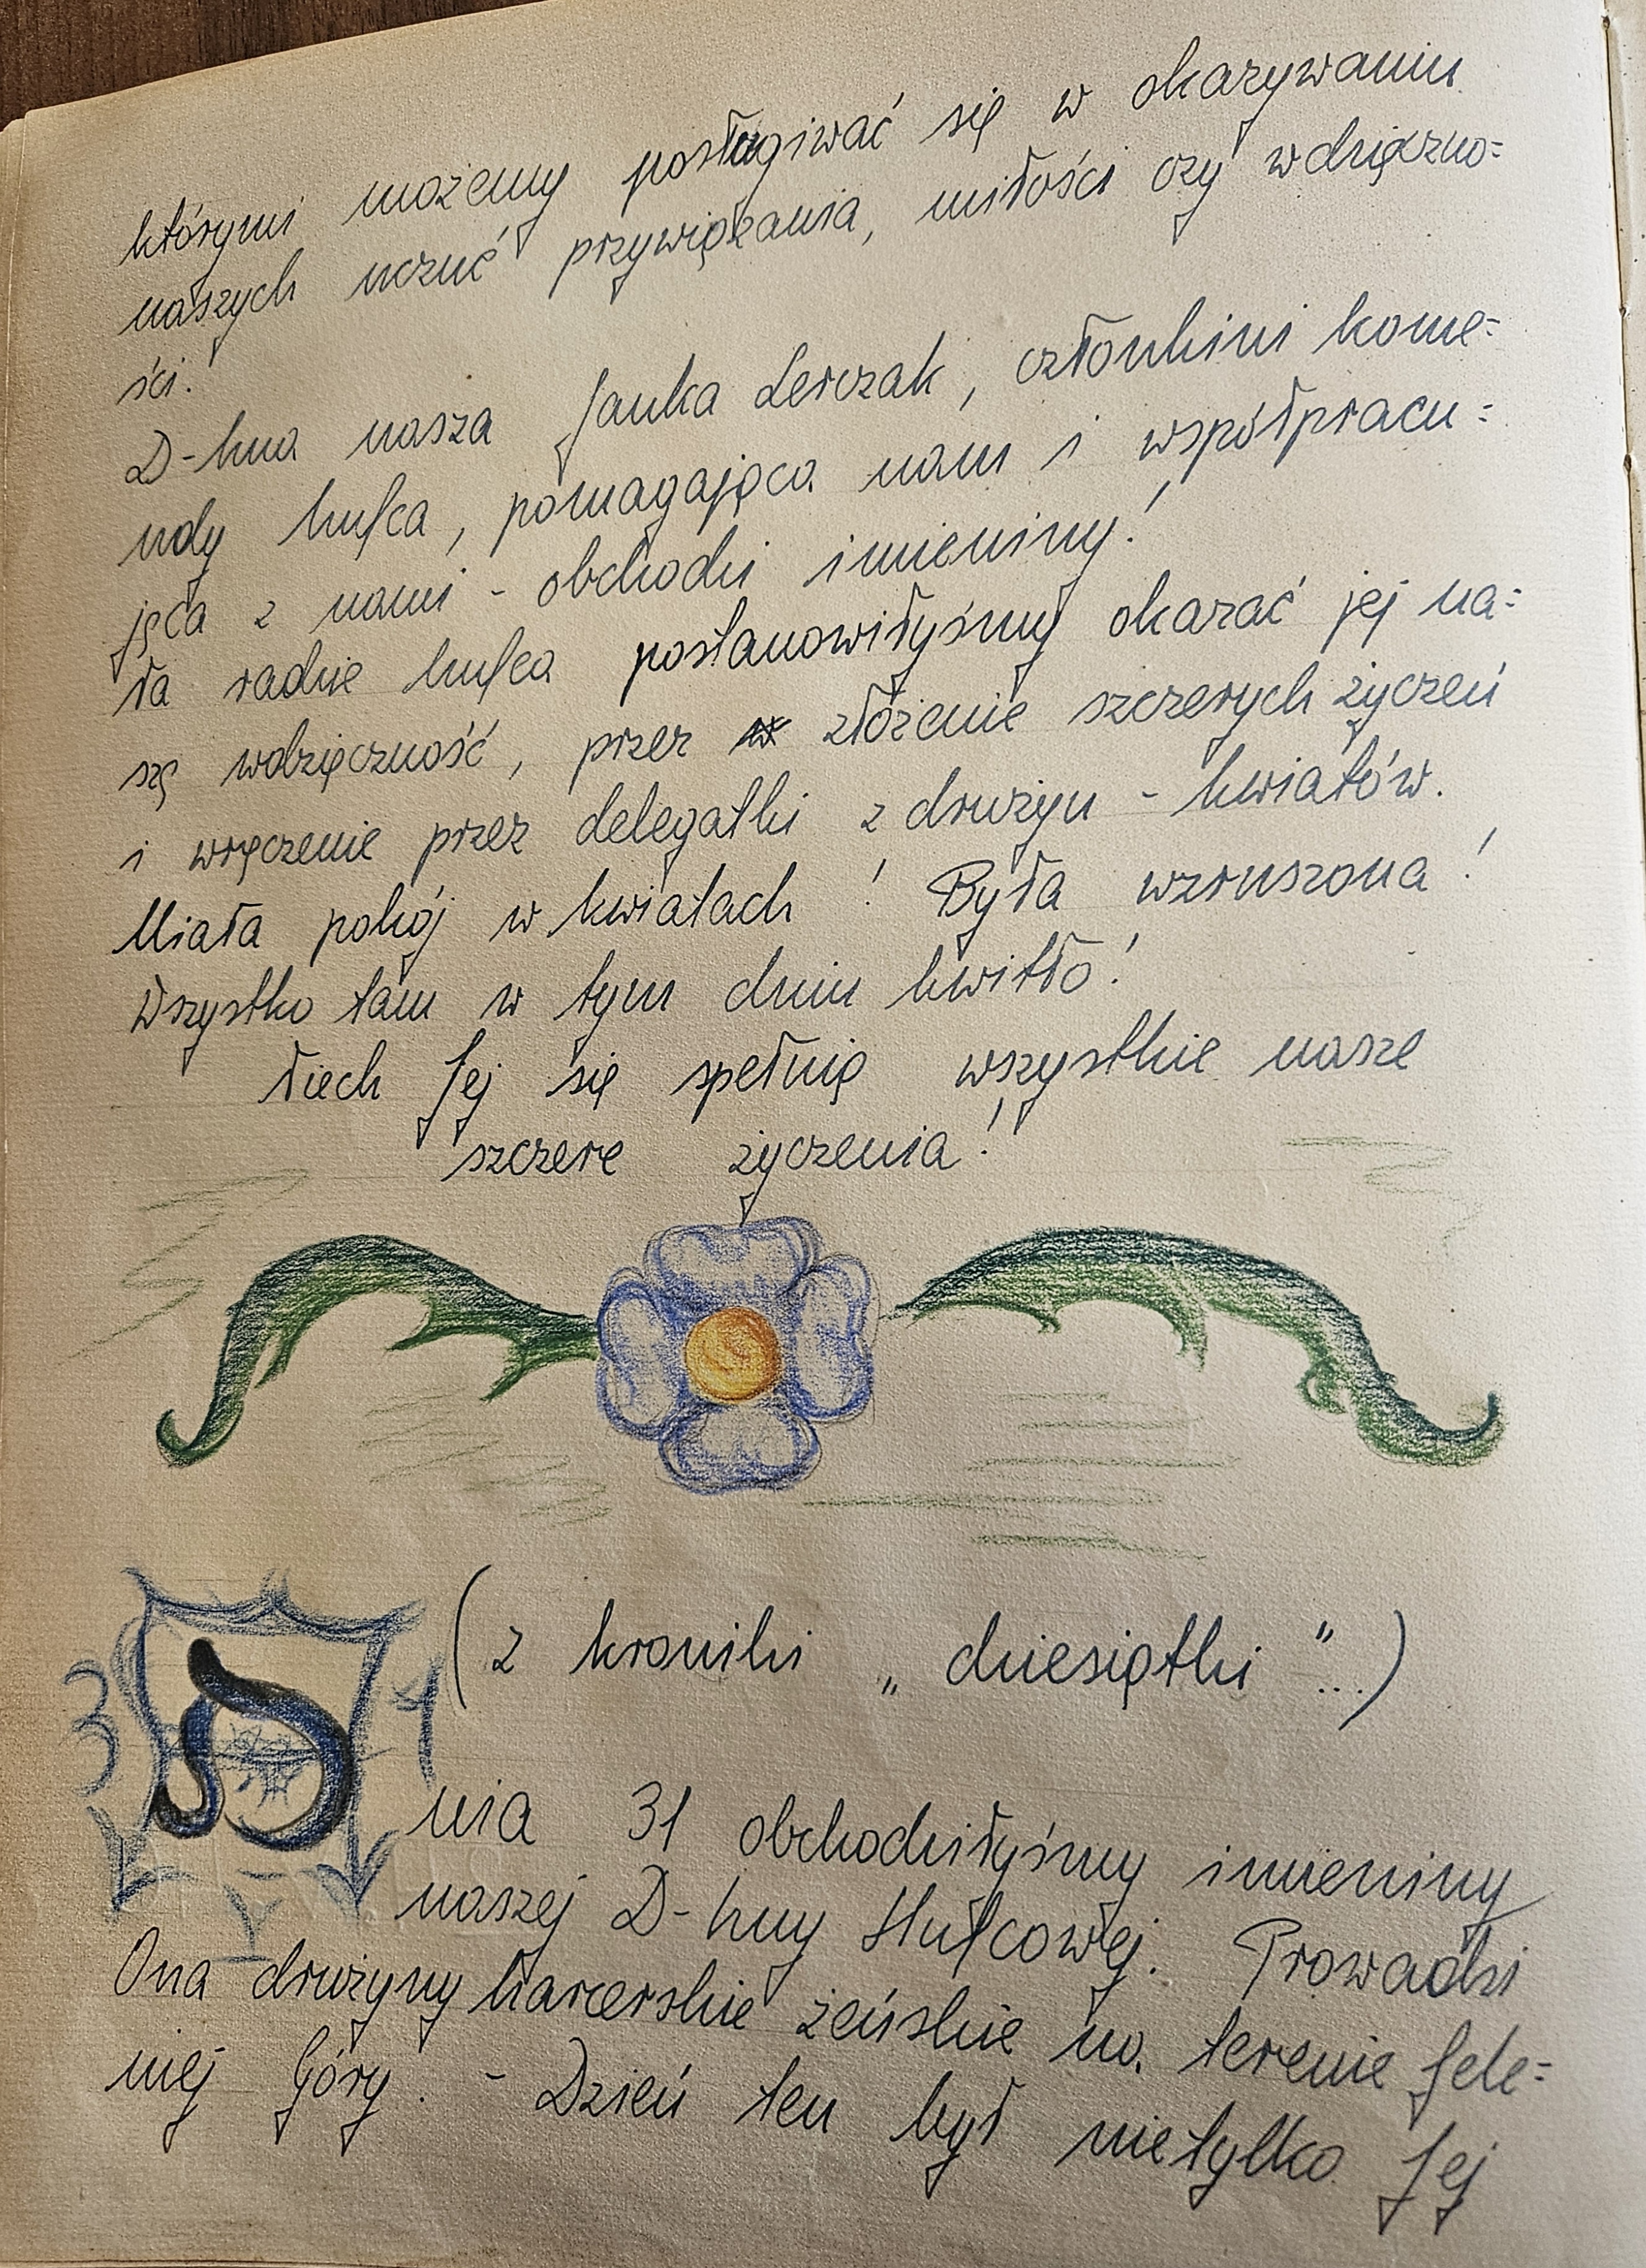 którymi możemy posługiwać się w okazywaniu
naszych uczuć przywiązania, miłości czy wdzięczno=
ści.
D-hna nasza Janka Lerczak, członkini kome=
ndy hufca, pomagająca nam i współpracu=
jąca z nami - obchodzi imieniny!
Na radzie hufca postanowiłyśmy okazać jej na=
szą wdzięczność, przez złożenie szczerych życzeń
i wręczenie przez delegatki z drużyn - kwiatów.
Miała pokój w kwiatach! Była wzruszona!
Wszystko tam w tym dniu kwitło!
Niech Jej się spełnią wszystkie nasze
szczere życzenia!
(z kroniki „dziesiątki"...)
31
Dnia 31 obchodziłyśmy imieniny
V
naszej D-hny Hufcowej. Prowadzi
Ona drużyny harcerskie żeńskie na terenie Jele=
niej Góry. - Dzień ten był nietylko Jej